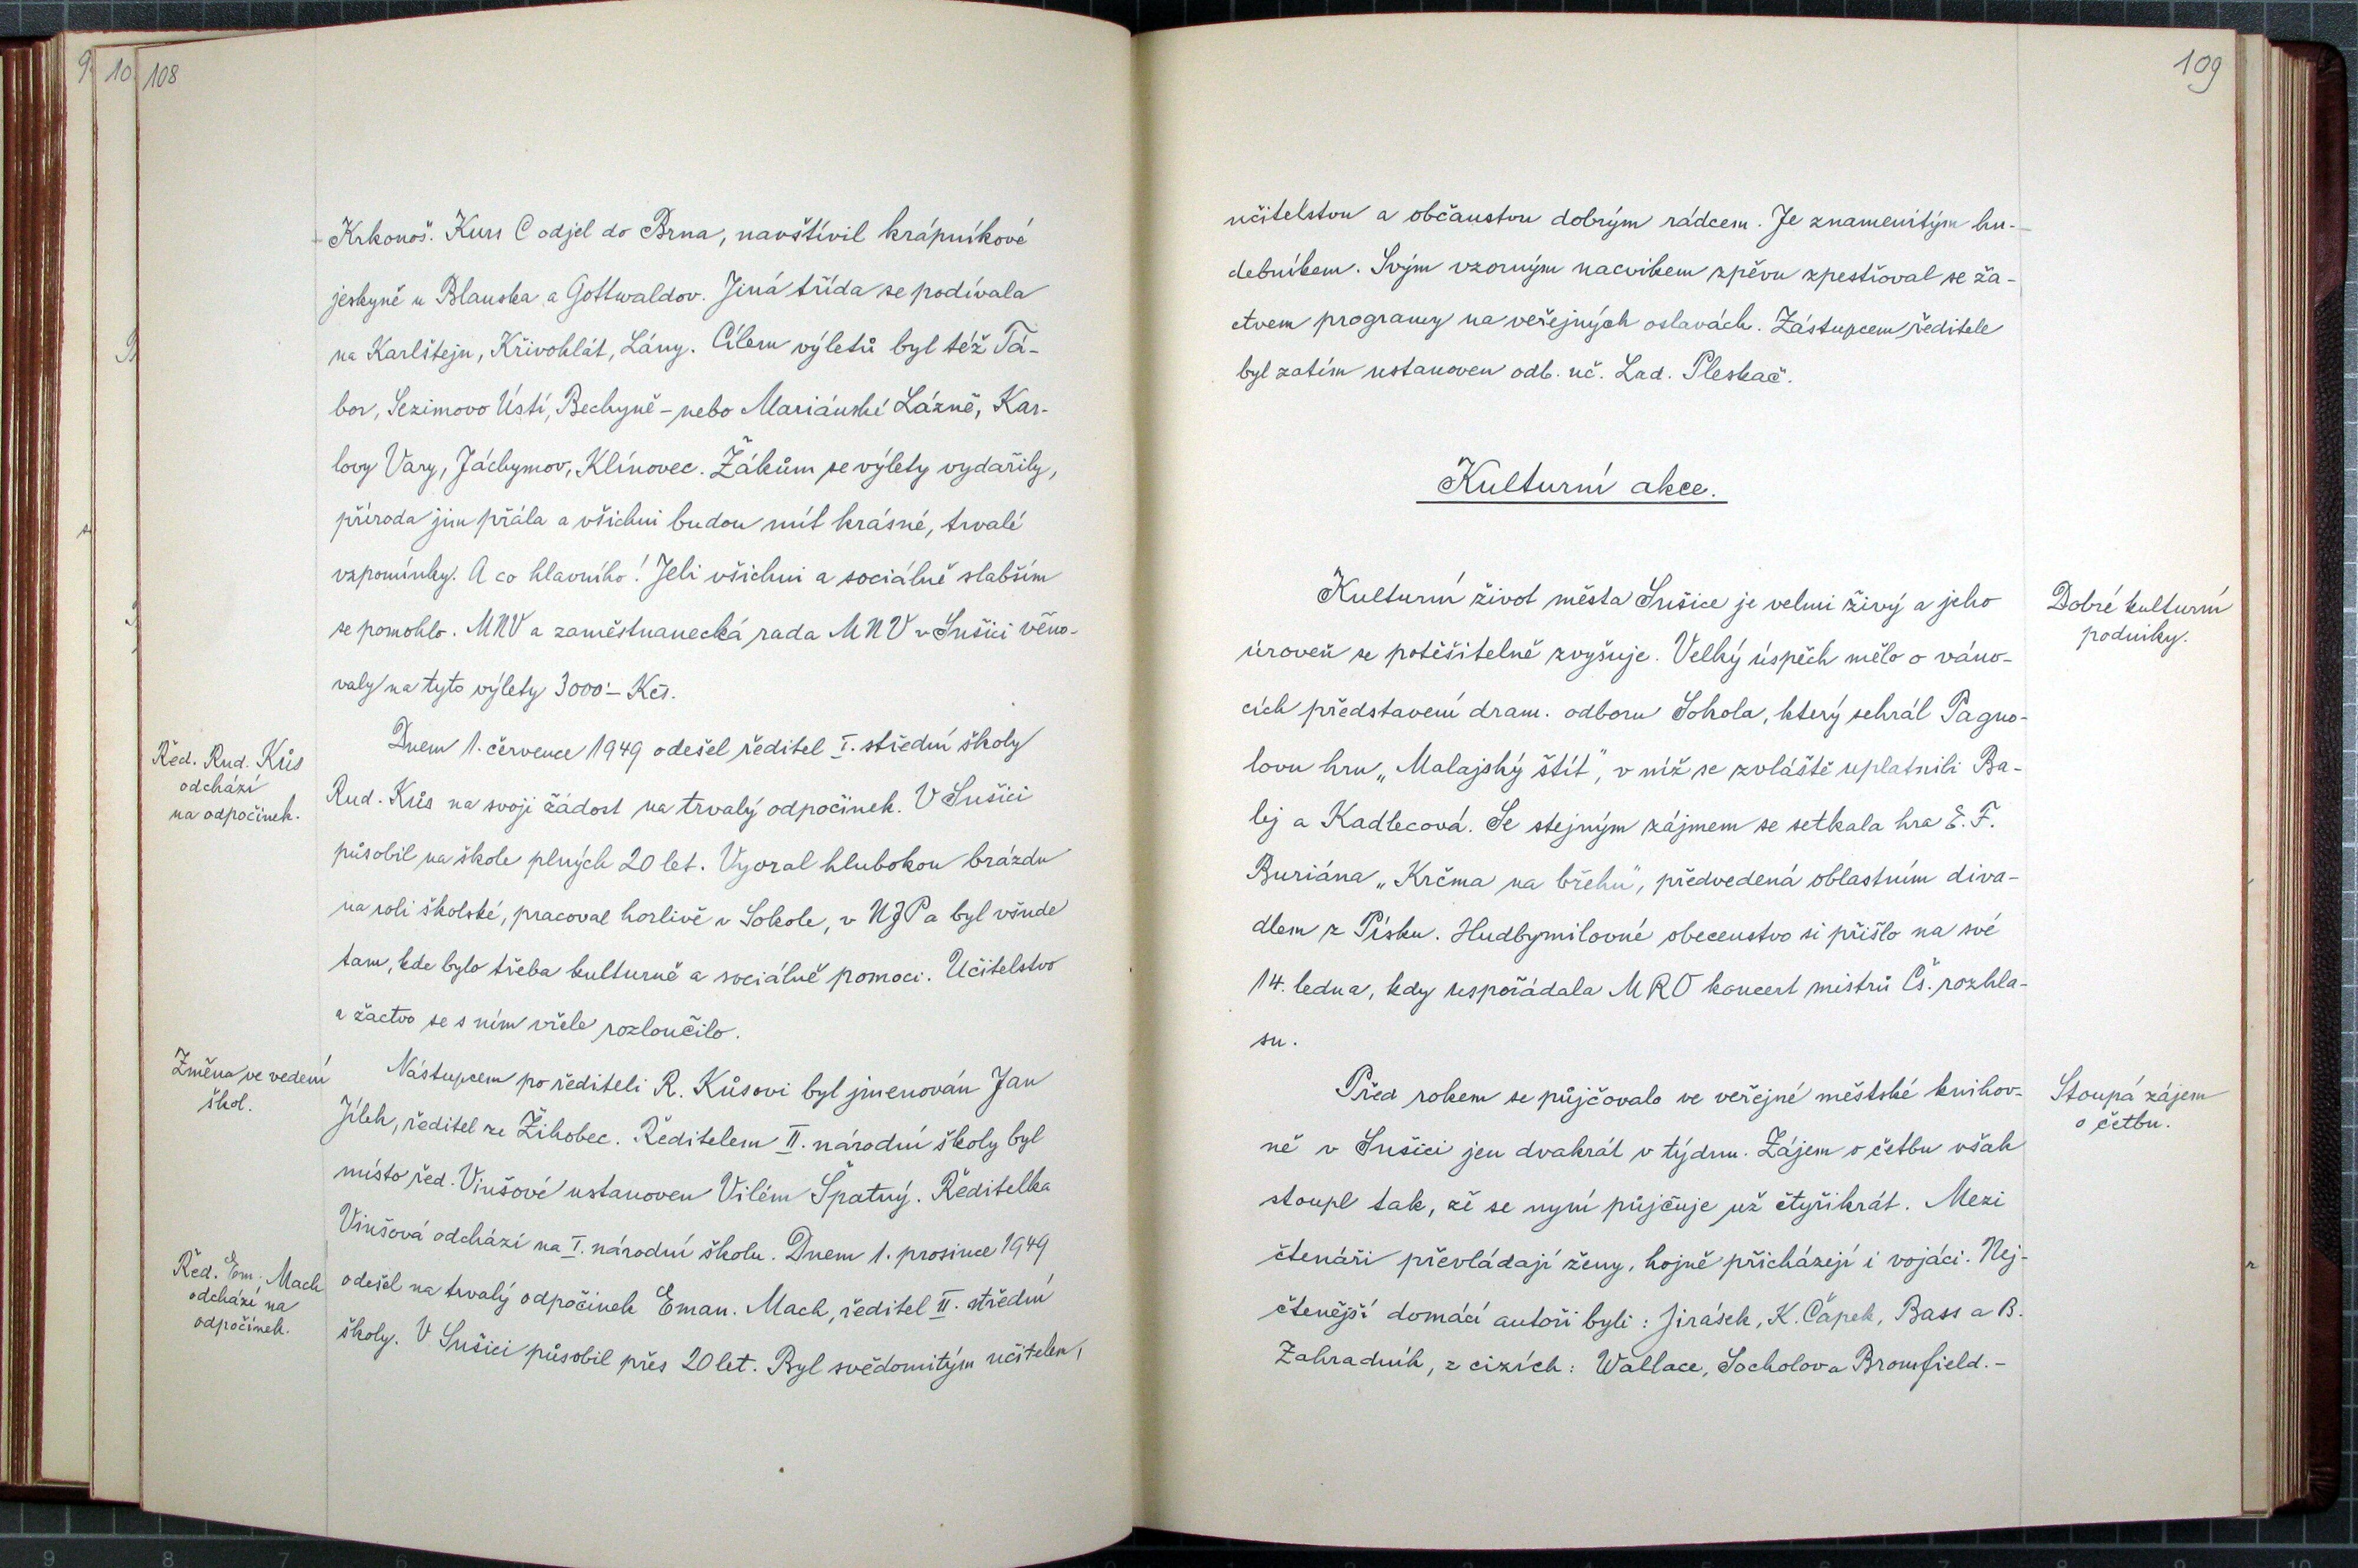 108
Krkonoš. Kurs C odjel do Brna, navštívil krápníkové
jeskyně u Blanska a Gottwaldov. Jiná třída se podívala
na Karlštejn, Křivoklát, Lány. Cílem výletů byl též Tá-
bor, Sezimovo Ústí, Bechyně - nebo Mariánské Lázně, Kar-
lovy Vary, Jáchymov, Klínovec. Žákům se výlety vydařily,
příroda jim přála a všichni budou mít krásné, trvalé
vzpomínky. A co hlavního! Jeli všichni a sociálně slabším
se pomohlo. MNV a zaměstnanecká rada MNV v Sušici věno-
valy na tyto výlety 3000·- Kčs.
Řed. Rud. Kůs
odchází
na odpočinek.
Dnem 1. července 1949 odešel ředitel I. střední školy
Rud. Kůs na svoji žádost na trvalý odpočinek. V Sušici
působil na škole plných 20 let. Vyoral hlubokou brázdu
na roli školské, pracoval horlivě v Sokole, v NJP a byl všude
tam, kde bylo třeba kulturně a sociálně pomoci. Učitelstvo
a žactvo se s ním vřele rozloučilo.
Změna ve vedení
škol.
Nástupcem po řediteli R. Kůsovi byl jmenován Jan
Jílek, ředitel ze Žihobec. Ředitelem II. národní školy byl
místo řed. Vinšové ustanoven Vilém Špatný. Ředitelka
Vinšová odchází na I. národní školu. Dnem 1. prosince 1949
Řed. Em. Mach
odchází na
odpočinek.
odešel na trvalý odpočinek Eman. Mach, ředitel II. střední
školy. V Sušici působil přes 20 let. Byl svědomitým učitelem,
109
učitelstvu a občanstvu dobrým rádcem. Je znamenitým hu-
debníkem. Svým vzorným nacvikem zpěvu zpestřoval se ža-
ctvem programy na veřejných oslavách. Zástupcem ředitele
byl zatím ustanoven odb. uč. Lad. Pleskač.
Kulturní akce.
Kulturní život města Sušice je velmi živý a jeho
úroveň se potěšitelně zvyšuje. Velký úspěch mělo o váno-
cích představení dram. odboru Sokola, který sehrál Pagno-
lovu hru „Malajský štít", v níž se zvláště uplatnili Ba-
lej a Kadlecová. Se stejným zájmem se setkala hra E. F.
Buriána „Krčma na břehu", předvedená oblastním diva-
dlem z Písku. Hudbymilovné obecenstvo si přišlo na své
14. ledna, kdy uspořádala MRO koncert mistrů Čs. rozhla-
su.
Dobré kulturní
podniky.
Před rokem se půjčovalo ve veřejné městské knihov-
ně v Sušici jen dvakrát v týdnu. Zájem o četbu však
stoupl tak, že se nyní půjčuje už čtyřikrát. Mezi
čtenáři převládají ženy, hojně přicházejí i vojáci. Nej-
čtenější domácí autoři byli: Jirásek, K. Čapek, Bass a B.
Zahradník, z cizích: Wallace, Socholova Bromfield. -
Stoupá zájem
o četbu.